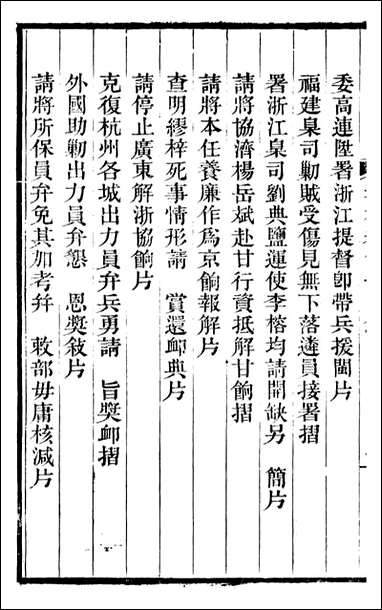 委高連陞署浙江提督卽帶兵援閩片
福建臬司勦賊受傷見無下落遴員接署摺
署浙江臬司劉典鹽運使李榕均請開缺另　簡片
請將協濟楊岳斌赴甘行資抵解甘餉摺
請將本任養廉作爲京餉報解片
查明繆梓死事情形請　賞還卹典片
請停止廣東解浙協餉片
克復杭州各城出力員弁兵勇請　旨獎卹摺
外國助勦出力員弁懇　恩獎敍片
請將所保員弁免其加考幷　敕部毋庸核減片